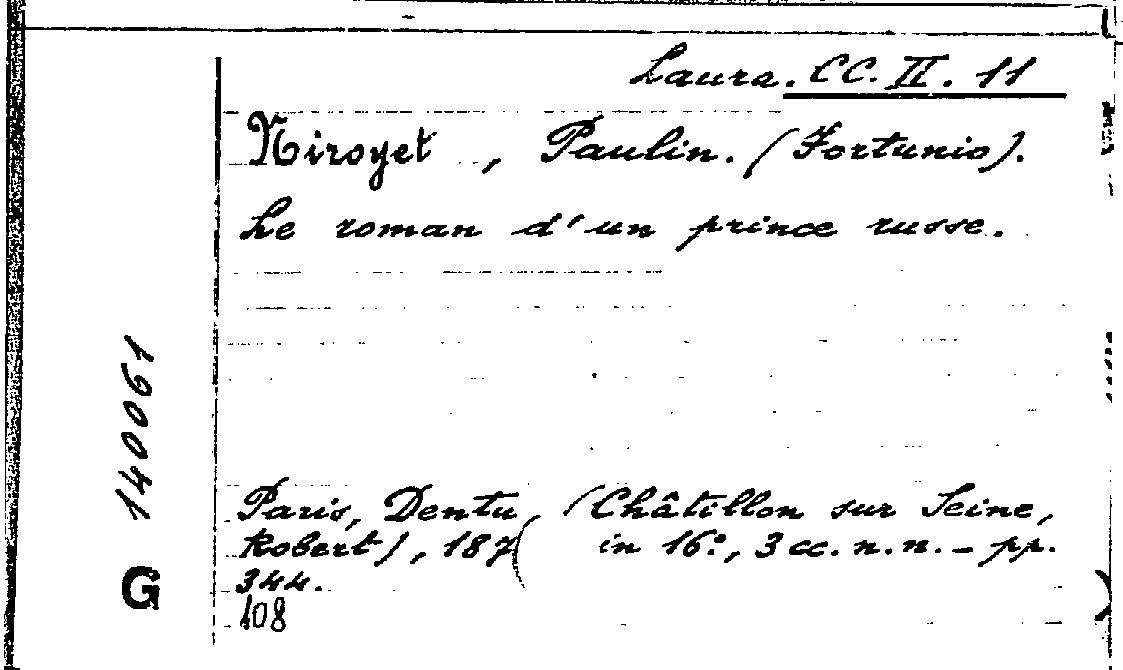 Laura. CC. II. 11
Niroyet, Paulin. (Fortunio).
Le roman d'un prince russe.
Paris, Dentu, (Châtillon sur Seine,
Robert), 187( in 16°, 3 cc. n. n. - pp.
344.
108
G 140061